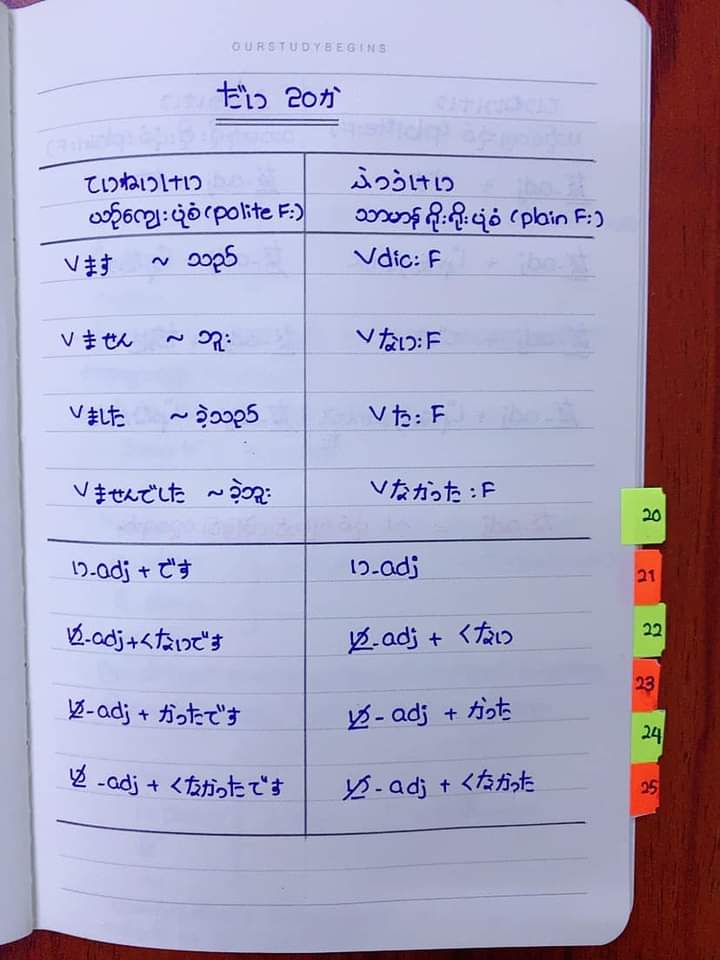 OURSTUDYBEGINS
だい 20か
ていねいけい ふつうけい
ယဉ်ကျေးပုံစံ (polite F:) သာမာန် ရိုးရိုးပုံစံ (plain F:)
Vます ~ သည် Vdic: F
Vません ~ ဘူး Vない: F
Vました ~ ခဲ့သည် Vた: F
Vませんでした ~ ခဲ့ဘူး Vなかった: F
い-adj + です い-adj
い-adj+くないです い-adj + くない
い-adj + かったです い-adj + かった
い-adj + くなかったです い-adj + くなかった
20
21
22
23
24
25